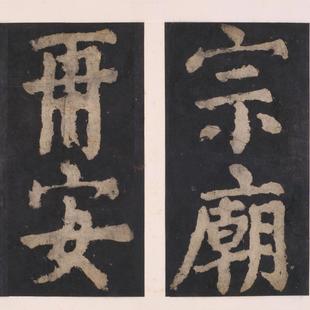 宗廟
再安